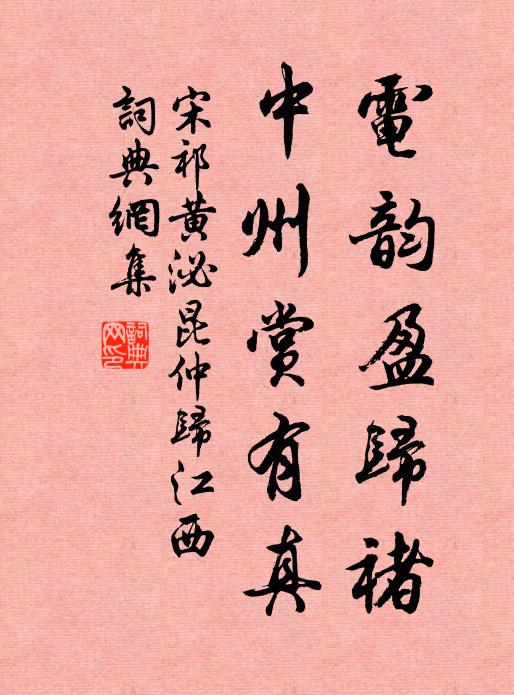 電韵盈歸褚
中州賞有真
宋祁黃泌昆仲歸江西
詞典網集
詞典網印